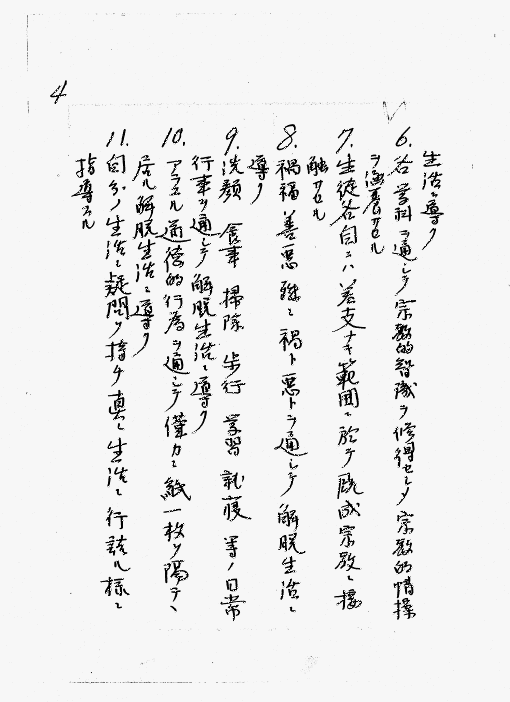 4
生活ニ導ク
6. 各学科ヲ通シテ宗教的智識ヲ修得セシメ宗教的情操
ヲ涵養セル
7. 生徒各自ニハ差支ナキ範囲ニ於テ既成宗教ニ接
触サセル
8. 禍福善悪殊ニ禍ト悪トヲ通シテ解脱生活ニ
導ク
9. 洗顔 食事 掃除 歩行 学習 就寝 等ノ日常
行事ヲ通シテ解脱生活ニ導ク
10. アラユル道徳的行為ヲ通シテ僅カニ紙一枚ヲ隔テヽ
居ル解脱生活ニ導ク
11. 自分ノ生活ニ疑問ヲ持チ真ニ生活ニ行詰ル様ニ
指導スル